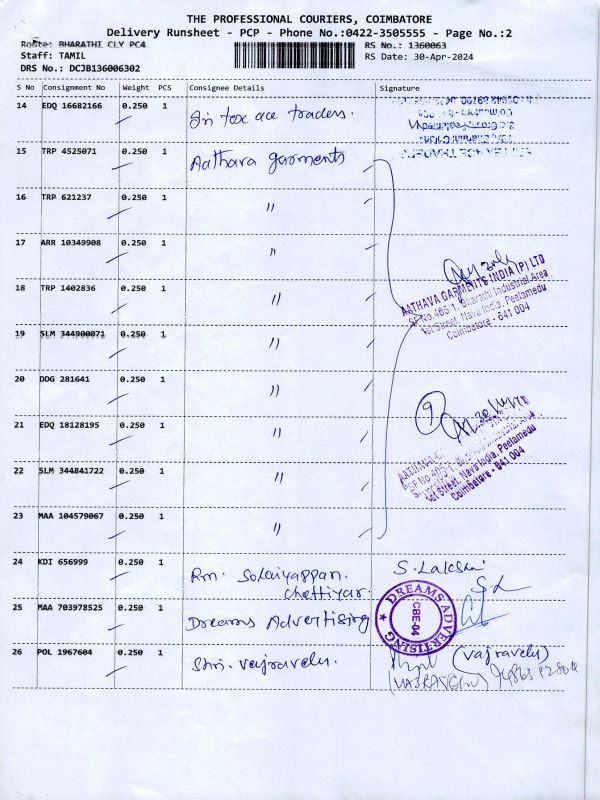 THE PROFESSIONAL COURIERS, COIMBATORE
Delivery Runsheet - PCP - Phone No.:0422-3505555 - Page No.:2
Route: BHARATHI CLY PC4
RS No.: 1360063
Staff: TAMIL
RS Date: 30-Apr-2024
DRS No.: DCJB136006302
S No Consignment No Weight PCS Consignee Details Signature
14 EDQ 16682166 0.250 1 traders.
15 TRP 4525071 0.250 1 Aathava garments
16 TRP 621237 0.250 1 "
17 ARR 10349908 0.250 1 "
18 TRP 1402836 0.250 1 "
AATHAVA GARMENTS INDIA (P) LTD
SF No.465/1, Bharathi Industrial Area
1st Street, Nava India, Peelamedu
Coimbatore - 641 004
19 SLM 344900071 0.250 1 "
20 DDG 281641 0.250 1 "
9
21 EDQ 18128195 0.250 1 "
1st Street, Nava India, Peelamedu
Coimbatore - 641 004
22 SLM 344841722 0.250 1 "
23 MAA 104579067 0.250 1 "
24 KDI 656999 0.250 1 Rm. Solaiyappan.
Chettiyar
25 MAA 703978525 0.250 1 Dreams Advertising
DREAMS ADVERTISING
CBE-04
26 POL 1967604 0.250 1 Shri. vajravelu.
(vajravelu)